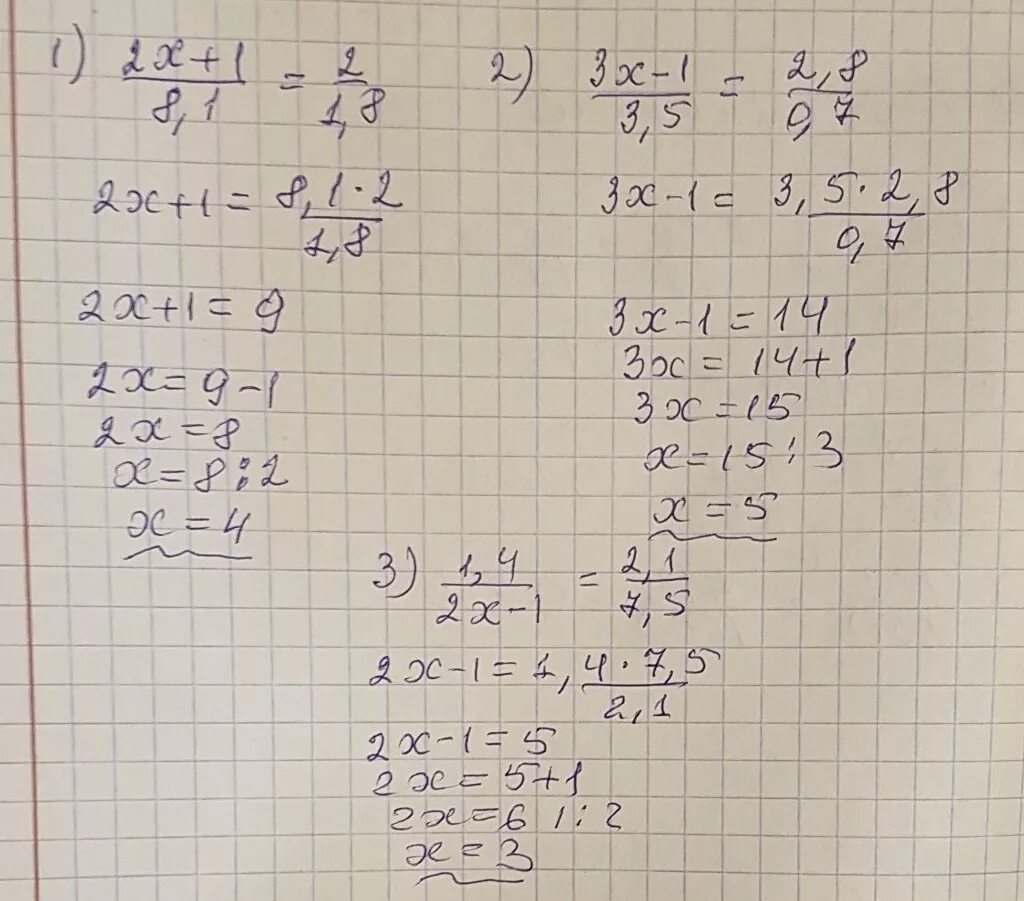 1) (2x+1)/(8,1) = 2/(1,8)
2x+1 = (8,1·2)/(1,8)
2x+1 = 9
2x = 9-1
2x = 8
x = 8:2
x = 4
2) (3x-1)/(3,5) = (2,8)/(0,7)
3x-1 = (3,5·2,8)/(0,7)
3x-1 = 14
3x = 14+1
3x = 15
x = 15:3
x = 5
3) (1,4)/(2x-1) = (2,1)/(7,5)
2x-1 = (1,4·7,5)/(2,1)
2x-1 = 5
2x = 5+1
2x = 6 |:2
x = 3